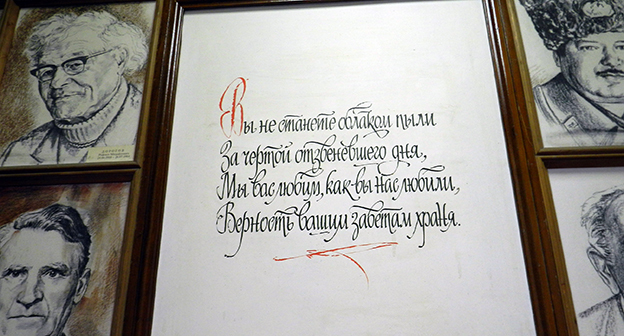 Вы не станете облаком пыли
За чертой отзвеневшего дня,
Мы вас любим, как вы нас любили,
Верность вашим заветам храня.